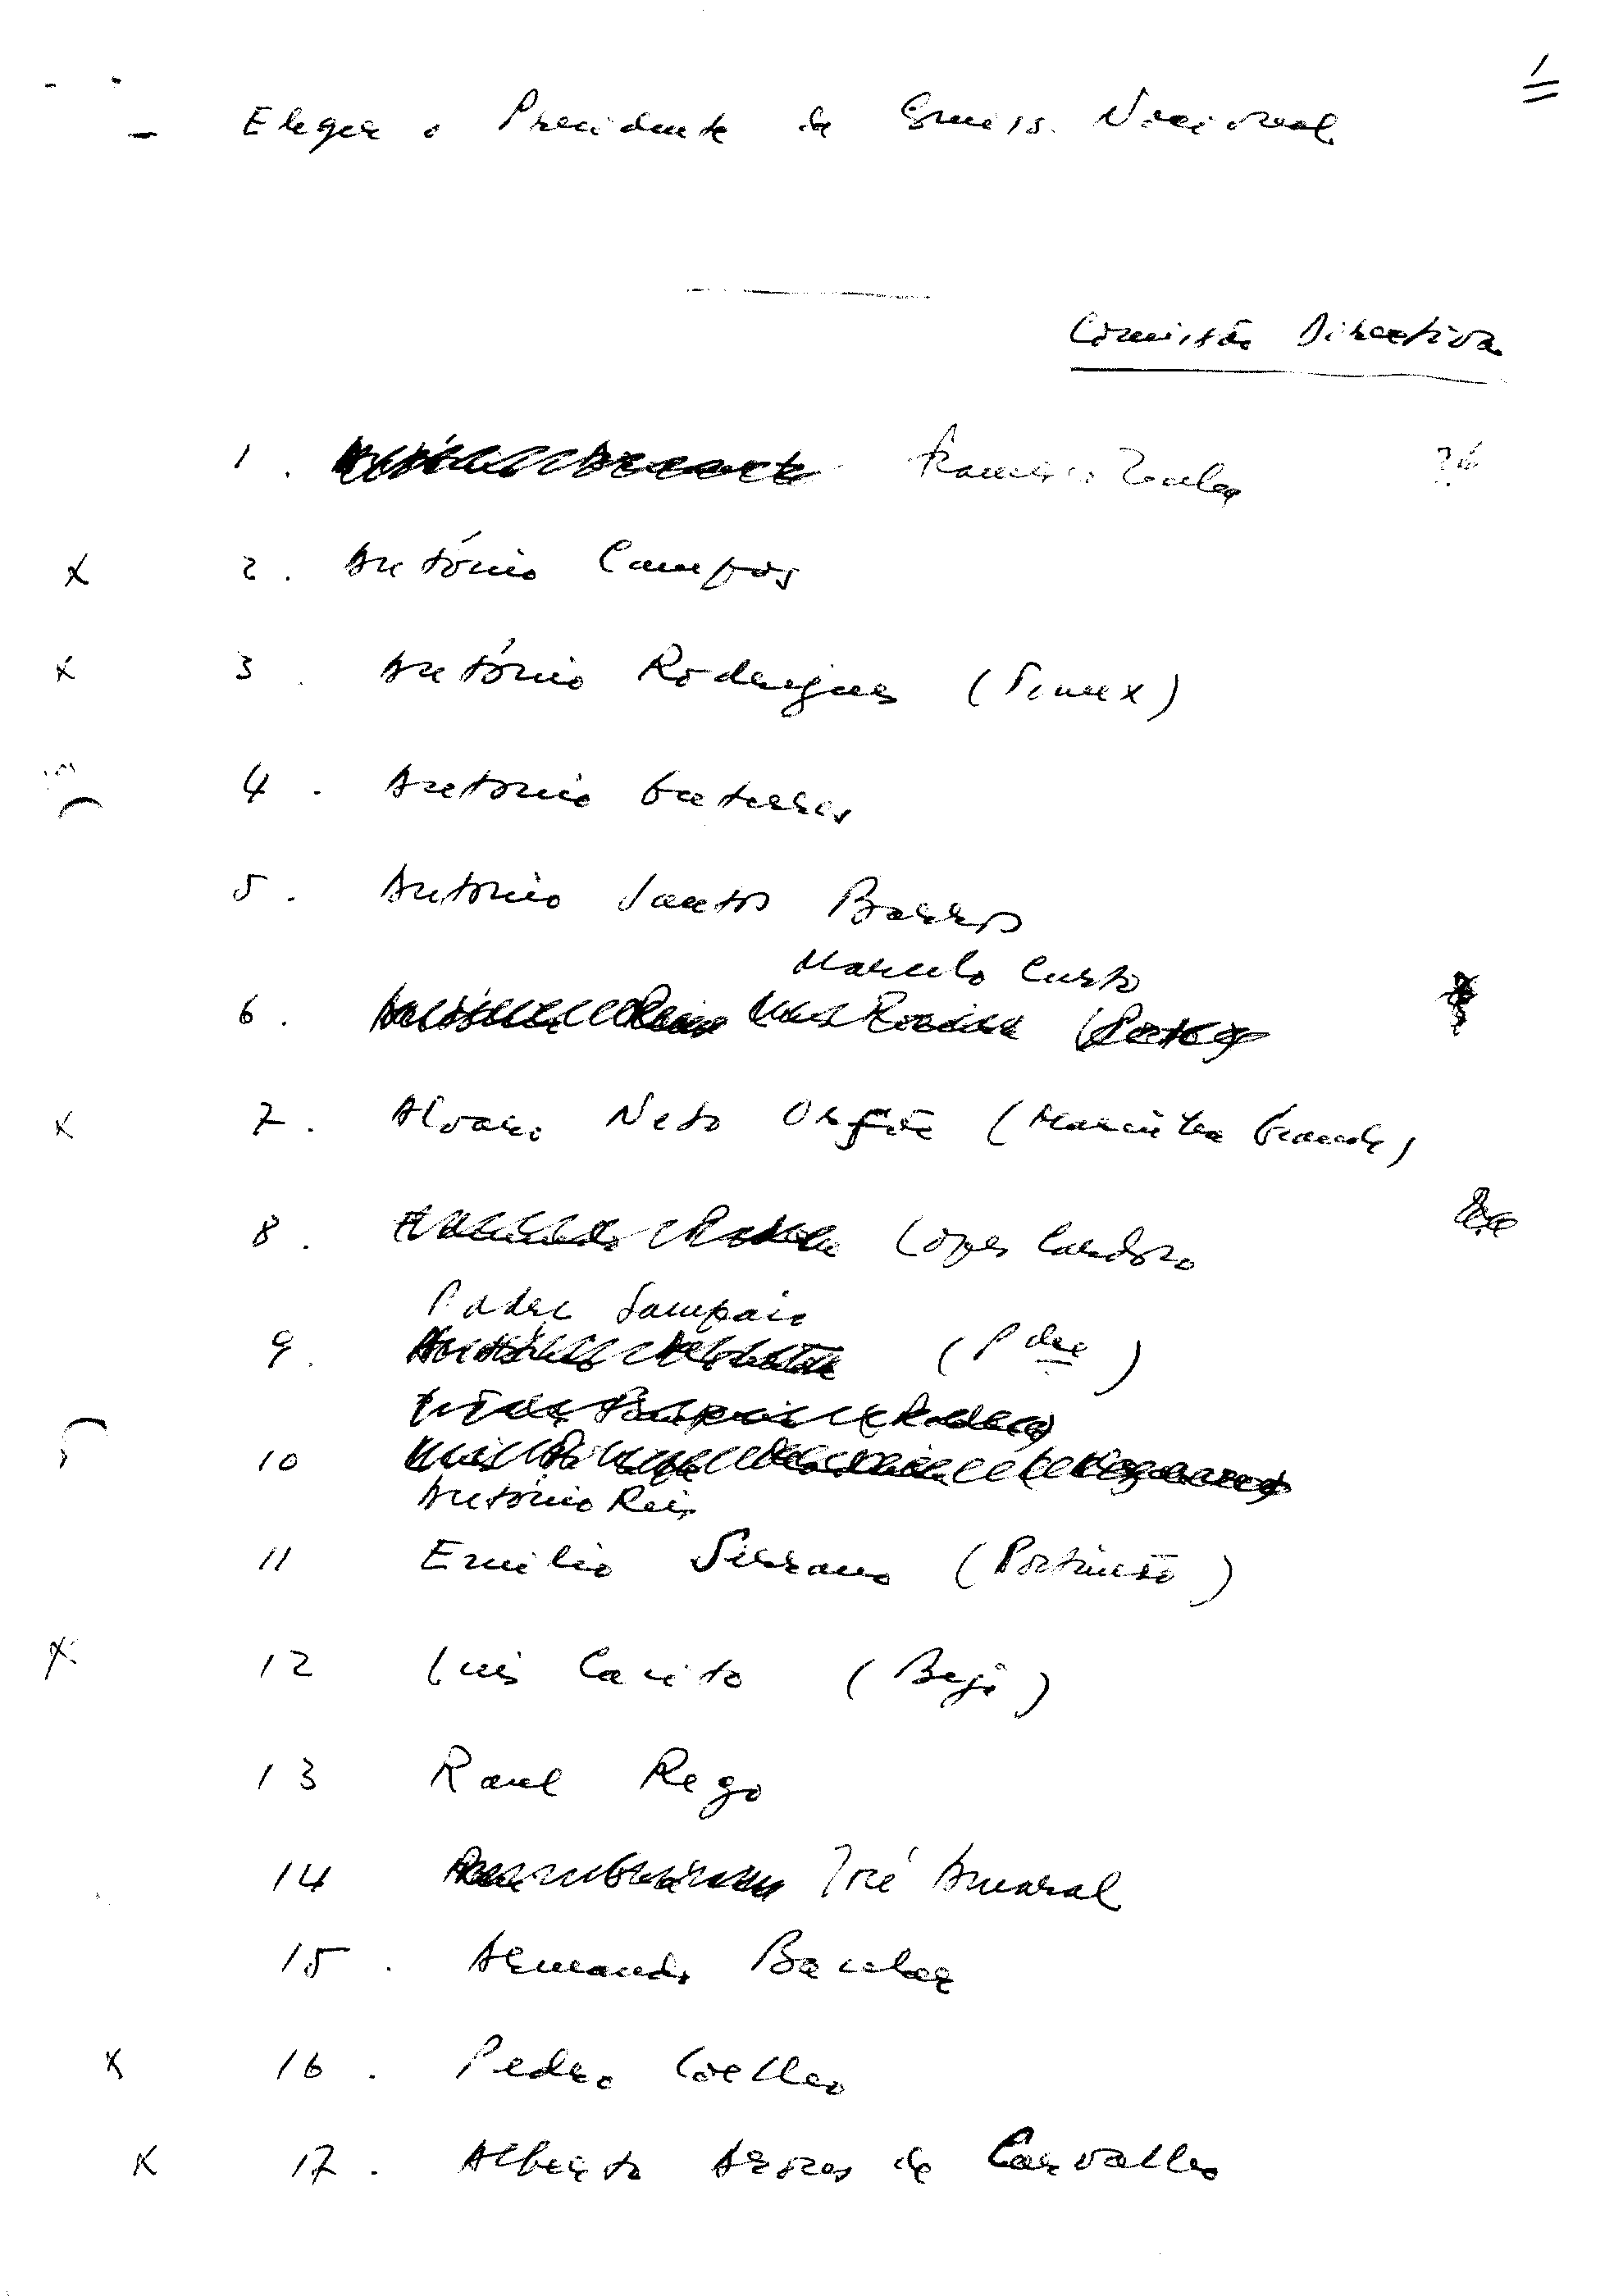 1
- Eleger o Presidente da Comiss. Nacional
Comissão Directiva
1. Francisco Zenha
x 2. António Campos
x 3. António Rodrigues (Timex)
4. Antonio Guterres
5. Antonio Santos Barros
Marcelo Curto
6.
x 7. Alvaro Neto Orfão (Marinha Grande)
8. Lopes Cardoso
Padre Sampaio
9. (Pdre)
10
António Reis
11 Emilio Serrano (Portimão)
x 12 Luis Cacito (Beja)
13 Raul Rego
14 José Amaral
15. Armando Bacelar
x 16. Pedro Coelho
x 17. Alberto Arons de Carvalho